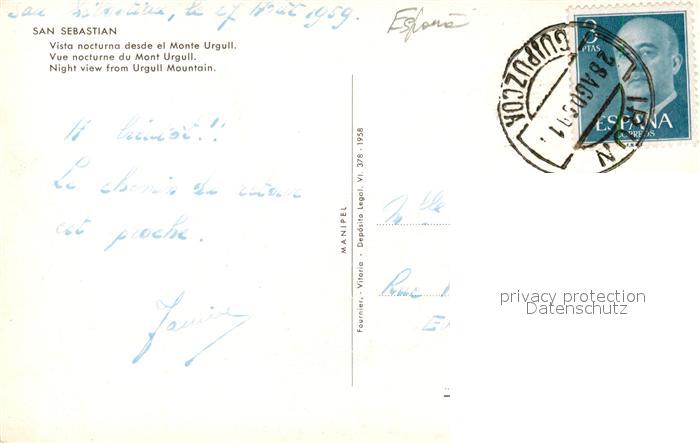 San Sebastian, le 27 Août 1959.
España
SAN SEBASTIAN
Vista nocturna desde el Monte Urgull.
Vue nocturne du Mont Urgull.
Night view from Urgull Mountain.
A bientôt!!
Le chemin du retour
est proche.
MANIPEL
Fournier.-Vitoria - Depósito Legal. VI. 378-1958
Mlle
Rue
PTAS
ESPAÑA
CORREOS
IRUN
28 AGO
GUIPUZCOA
privacy protection
Datenschutz